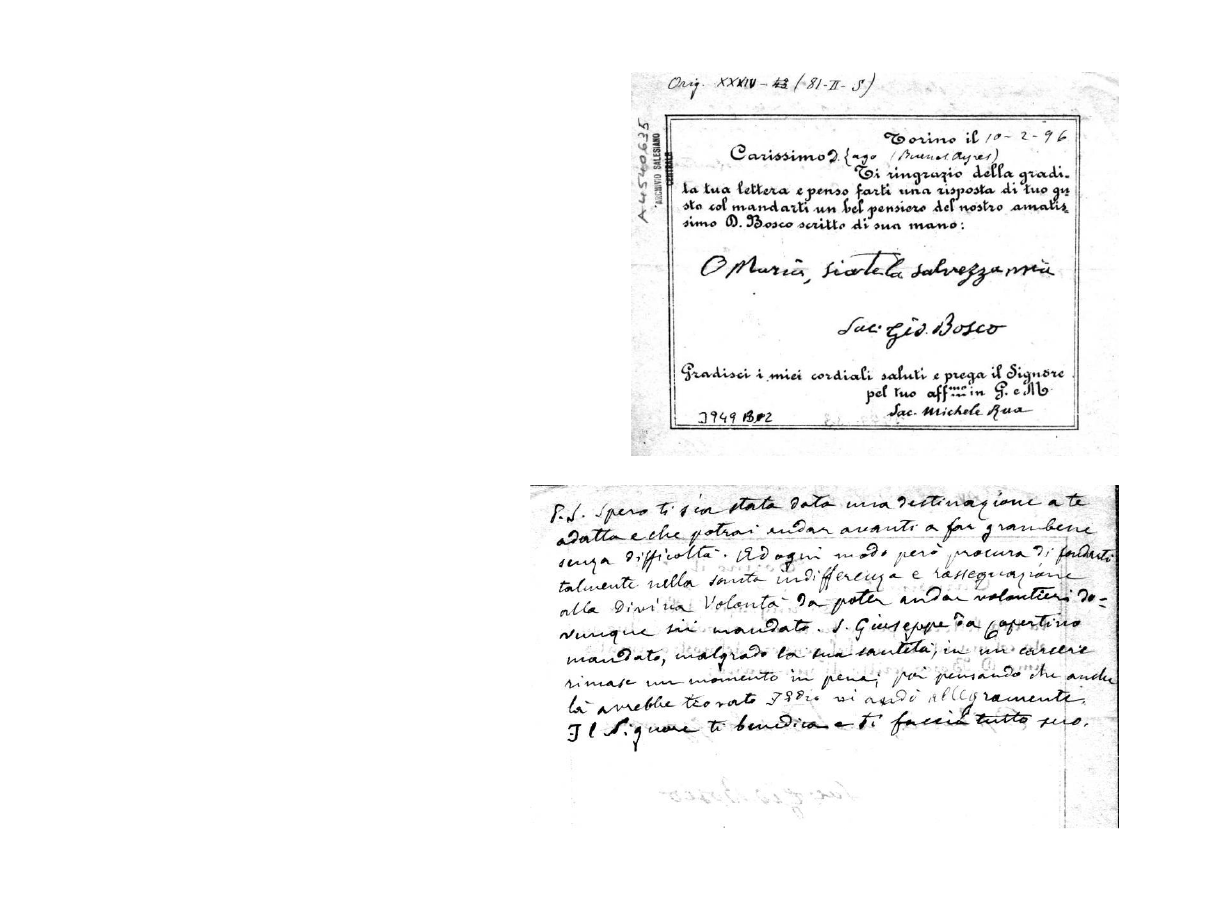 Orig. XXXIV - 43 (81-II-S.)
A4540635
ARCHIVIO SALESIANO
CENTRALE
Torino il 10-2-96
Carissimo D. (Buenos Ayres)
Ti ringrazio della gradi-
ta tua lettera e penso farti una risposta di tuo gu
sto col mandarti un bel pensiero del nostro amatis
simo D. Bosco scritto di sua mano:
O Maria, siate la salvezza mia
Sac. Gio. Bosco
Gradisci i miei cordiali saluti e prega il Signore
pel tuo aff.mo in G. e M.
Sac. Michele Rua
3949 B 2
P.S. Spero ti sia stata data una destinazione a te
adatta e che potrai andar avanti a far gran bene
senza difficoltà. Ad ogni modo però procura di fondarti
talmente nella santa indifferenza e rassegnazione
alla Divina Volontà da poter andar volontieri do=
vunque sii mandato. S. Giuseppe da Copertino
mandato, malgrado la sua santità, in un carcere
rimase un momento in pena; poi pensando che anche
là avrebbe trovato Iddio vi andò allegramente.
Il Signore ti benedica e ti faccia tutto suo.